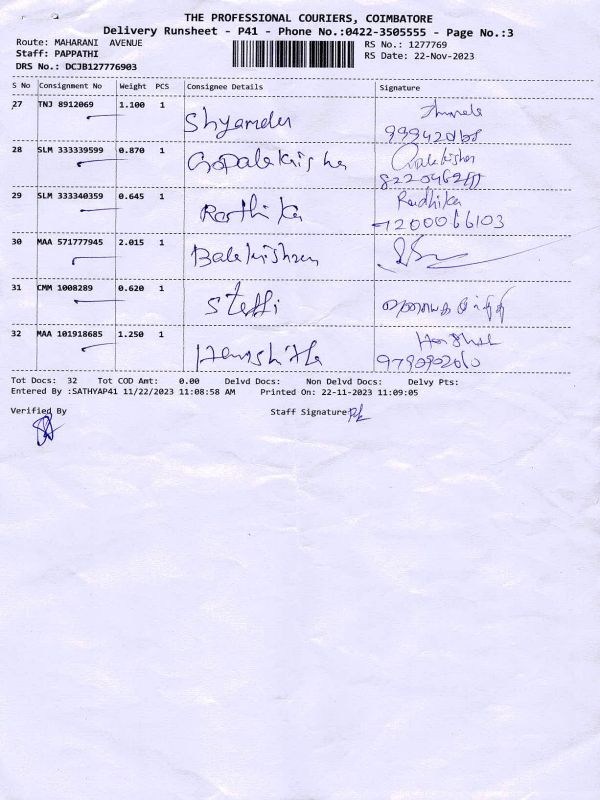 THE PROFESSIONAL COURIERS, COIMBATORE
Delivery Runsheet - P41 - Phone No.:0422-3505555 - Page No.:3
Route: MAHARANI AVENUE
Staff: PAPPATHI
DRS No.: DCJB127776903
RS No.: 1277769
RS Date: 22-Nov-2023
S No Consignment No Weight PCS Consignee Details Signature
27 TNJ 8912069 1.100 1 Shyamden
28 SLM 333339599 0.870 1 Gopalakrisha
29 SLM 333340359 0.645 1 Rarthika Radhika
7200066103
30 MAA 571777945 2.015 1 Balakrishnan
31 CMM 1008289 0.620 1 Steffi
32 MAA 101918685 1.250 1 Hanshitha
9790902060
Tot Docs: 32 Tot COD Amt: 0.00 Delvd Docs: Non Delvd Docs: Delvy Pts:
Entered By :SATHYAP41 11/22/2023 11:08:58 AM Printed On: 22-11-2023 11:09:05
Verified By Staff Signature